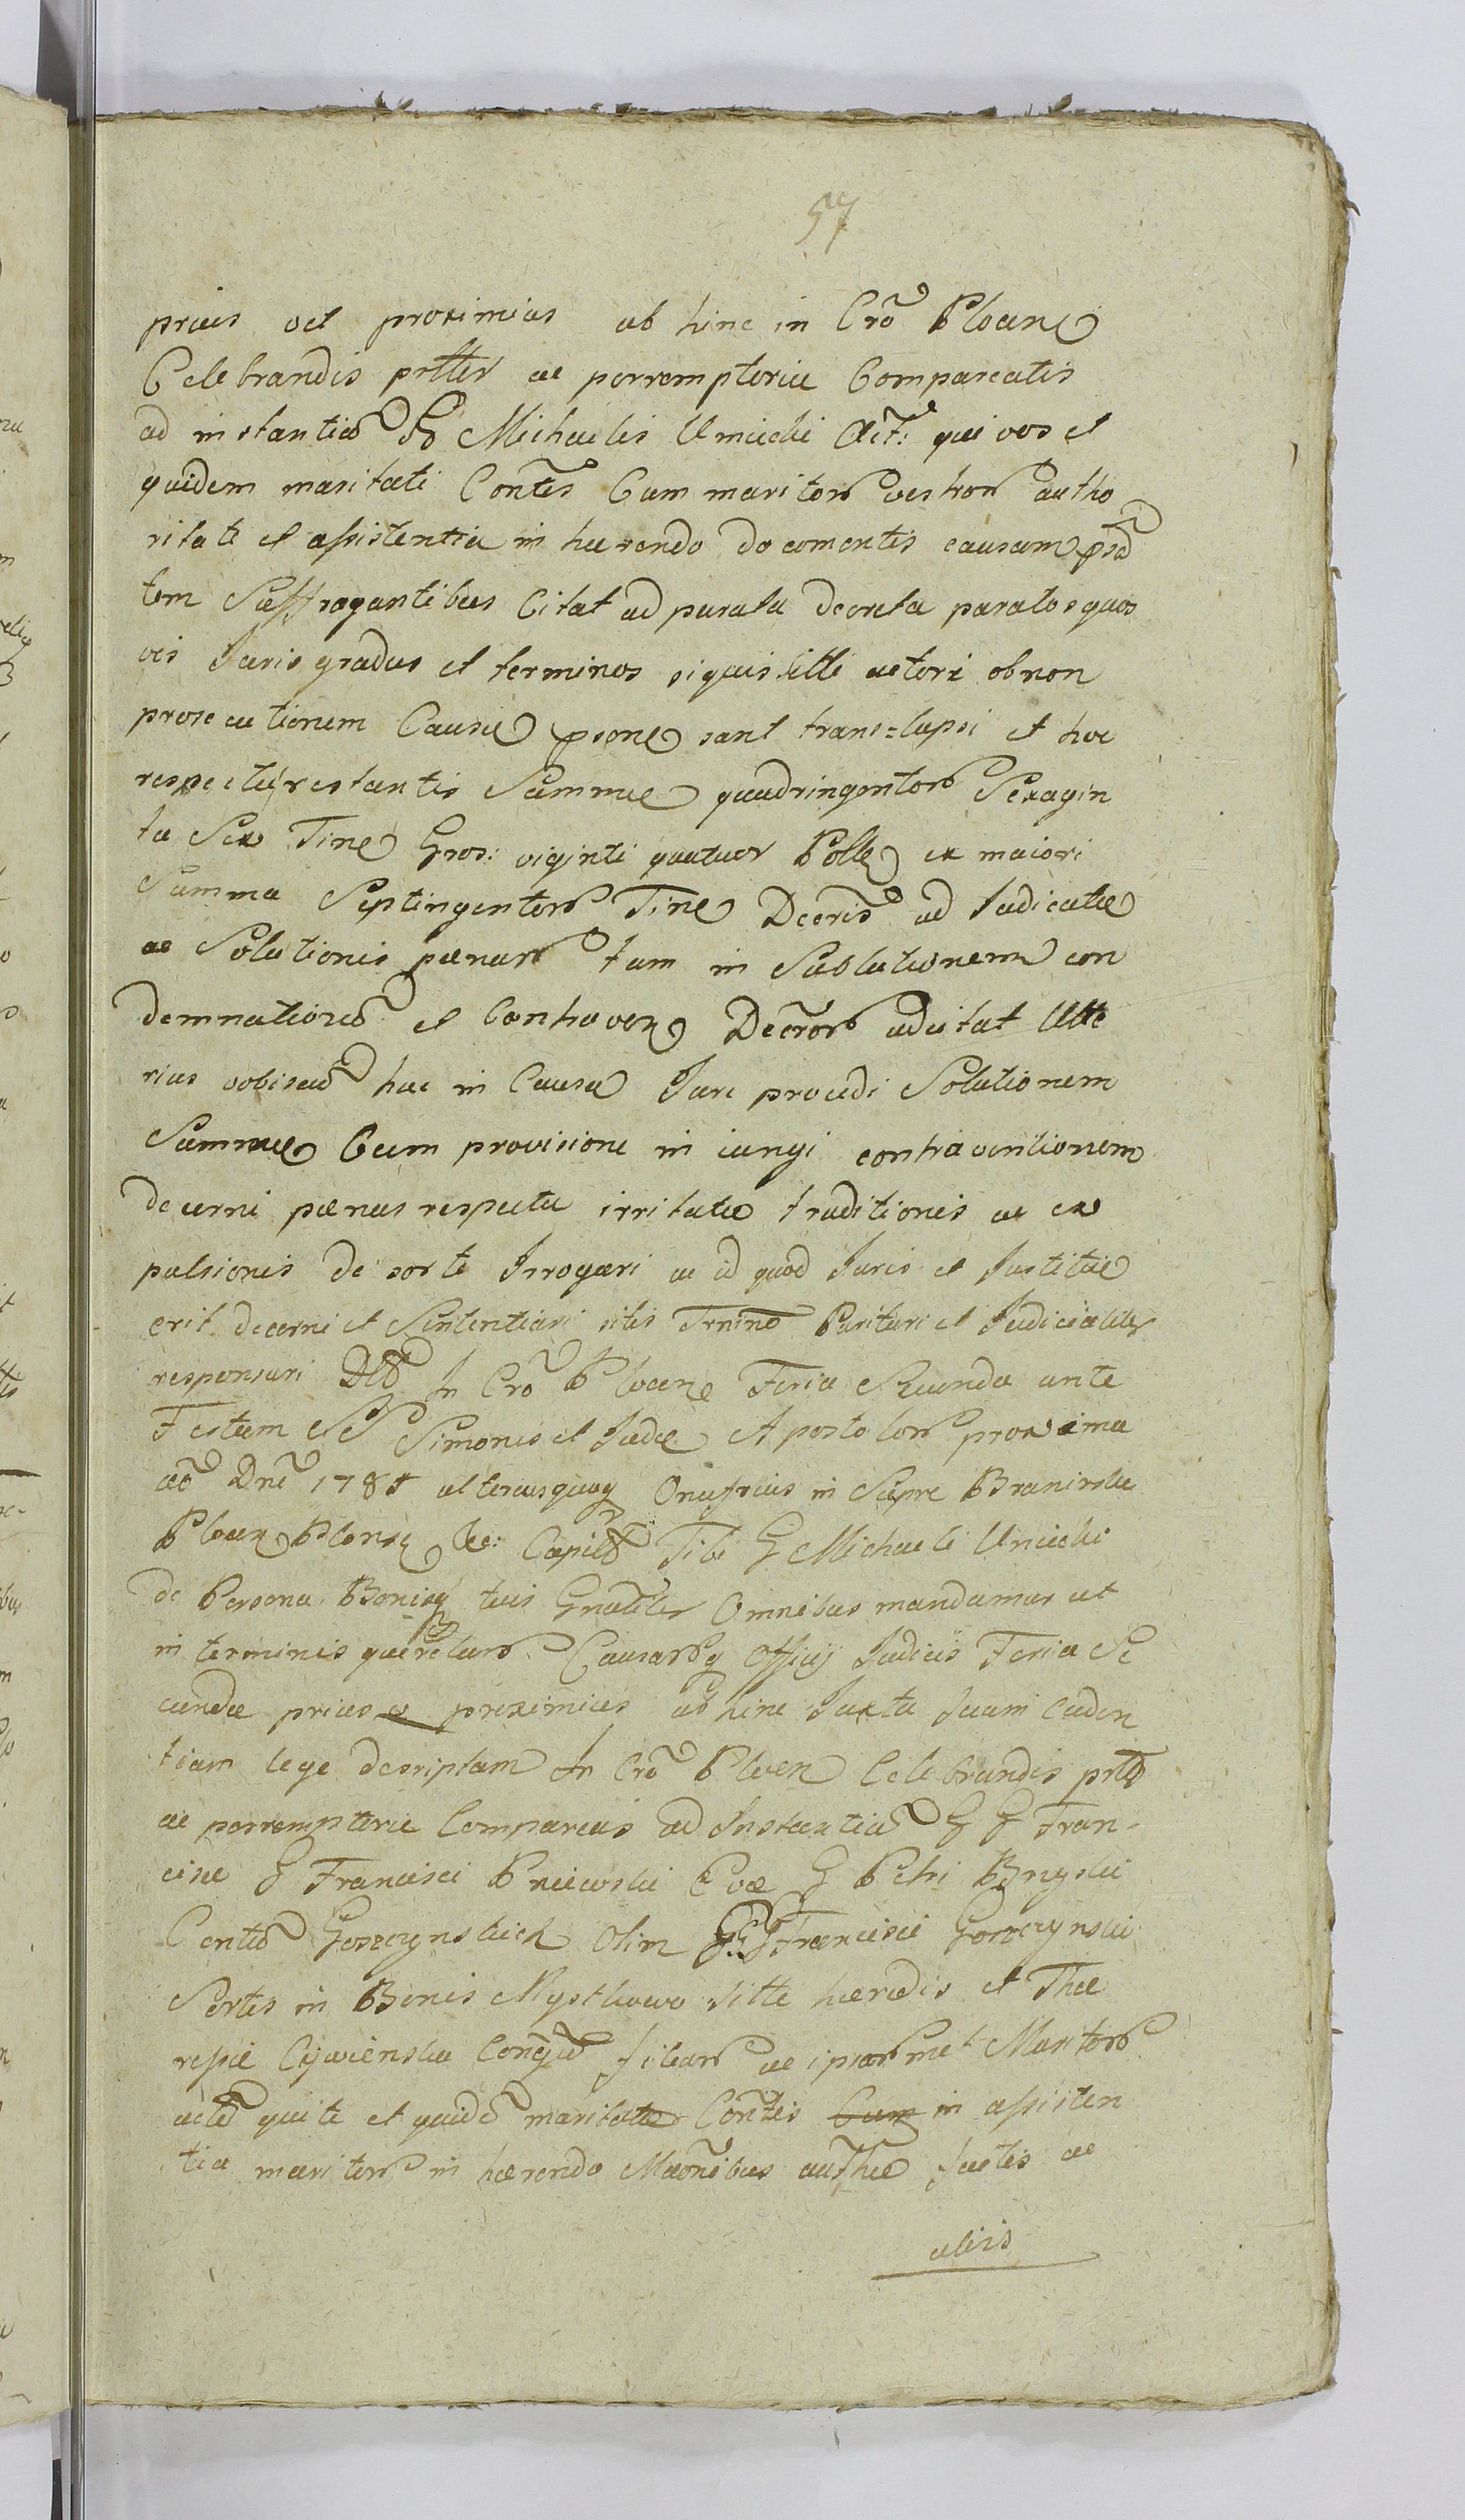 57
prius vel proximius ab hinc in Crõ Plocen
Celebrandis pntter ac perremptorie Compareatis
ad instantiã Michaelis Uniecki Act: qui vos et
quidem maritati Contes Cum maritorũ vestrorũ autho
ritate et assistentia in haerendo documentis causam
tem Suffragantibus Citat ad parata decreta paratosquos
vis Juris gradus et terminos siquis illi actori ob non
prosecutionem Causae psone sant trans=lapsi et hoc
respectu restantis Summae quadringentorũ Sexagin
ta Sex Tine Gros: viginti quatuor Polle ex maiori
Summa Septingentorũ Tine Decris ad Judicatae
ac Solutionis paenarũ tam in Sublationem con
demnationũ et Contraven Decrorũ adcitat Ulte
rius vobiscũ hac in Causa Jure procedi Solutionem
Summae Cum provisione in iungi contraventionem
decerni paenas respectu irritatae traditionis ac ex
pulsionis de sorte Irrogari ac id quod Juris et Justitiae
erit decerni et Sententiari sitis Trnino Parituri et Judicialiter
responsuri Dtt In Crõ Plocen Feria Secunda ante
Festum SS Simonis et Judae Apostolorũ proxima
Aõ Dni 1785 alteriusquoq Onufrius in Sepne Branirska
Plocen Plonsq &c: Capitt Tibi G Michaeli Uniecki
de Persona Bonisq tuis Gnaliter Omnibus mandamus ut
in terminis querelarũ Causarũq officij Judicis Feria Se
cunda prius proximius ab hinc Juxta Suam caden
tiam lege descriptam In Crõ Plocen Celebrandis pntt
ac perremptorie Compareas ad Instantiã G G Fran-
cisae G Francisci Pniewski Evae G Petri Brzyski
Contũ Goszczynskich Olim G G Francisci Goszczynski
Sortis in Bonis Mystkowo sitte haeredis et The
resiae Cywienska Congũ filiarũ ac ipsarũmet Maritorũ
actũ qui te et quidẽ maritatae Contes Cum in assisten
tia maritorũ in haerendo Maonibus authae factis ac
aliis